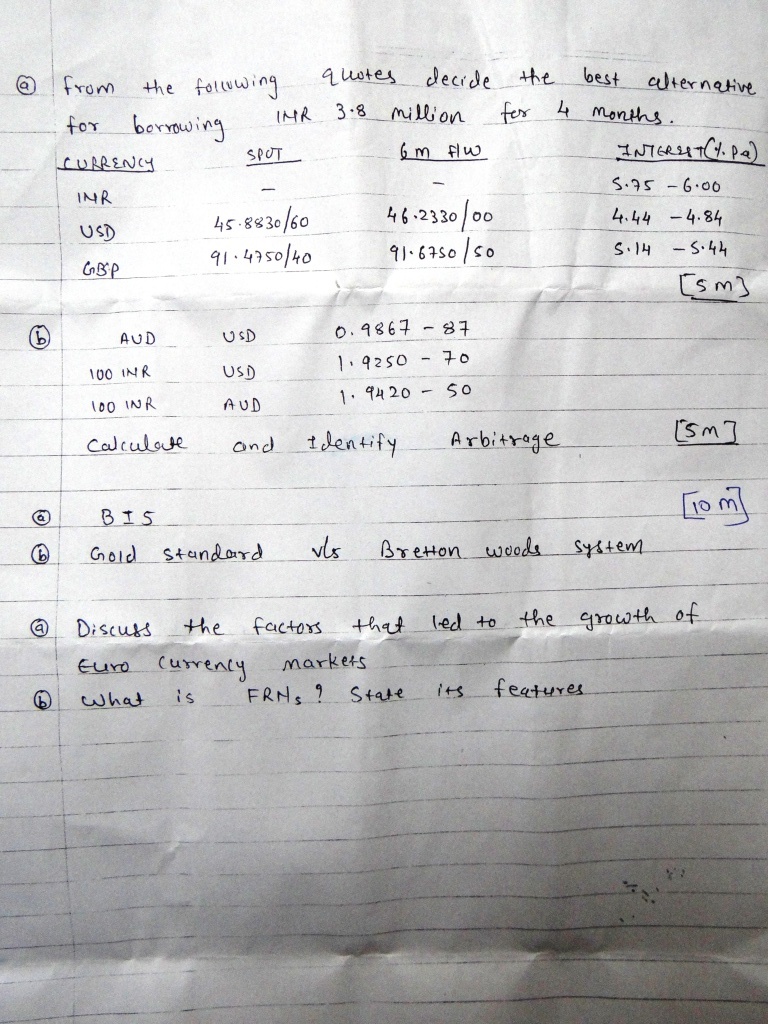 (a) From the following quotes decide the best alternative
for borrowing INR 3.8 million for 4 months.
CURRENCY SPOT 6m f/w INTEREST (% p.a)
INR - - 5.75 - 6.00
USD 45.8830/60 46.2330/00 4.44 - 4.84
GBP 91.4750/40 91.6750/50 5.14 - 5.44
[5m]
(b) AUD USD 0.9867 - 87
100 INR USD 1.9250 - 70
100 INR AUD 1.9420 - 50
Calculate and Identify Arbitrage [5m]
(a) BIS [10m]
(b) Gold standard v/s Bretton woods system
(a) Discuss the factors that led to the growth of
Euro Currency markets
(b) What is FRNs? State its features